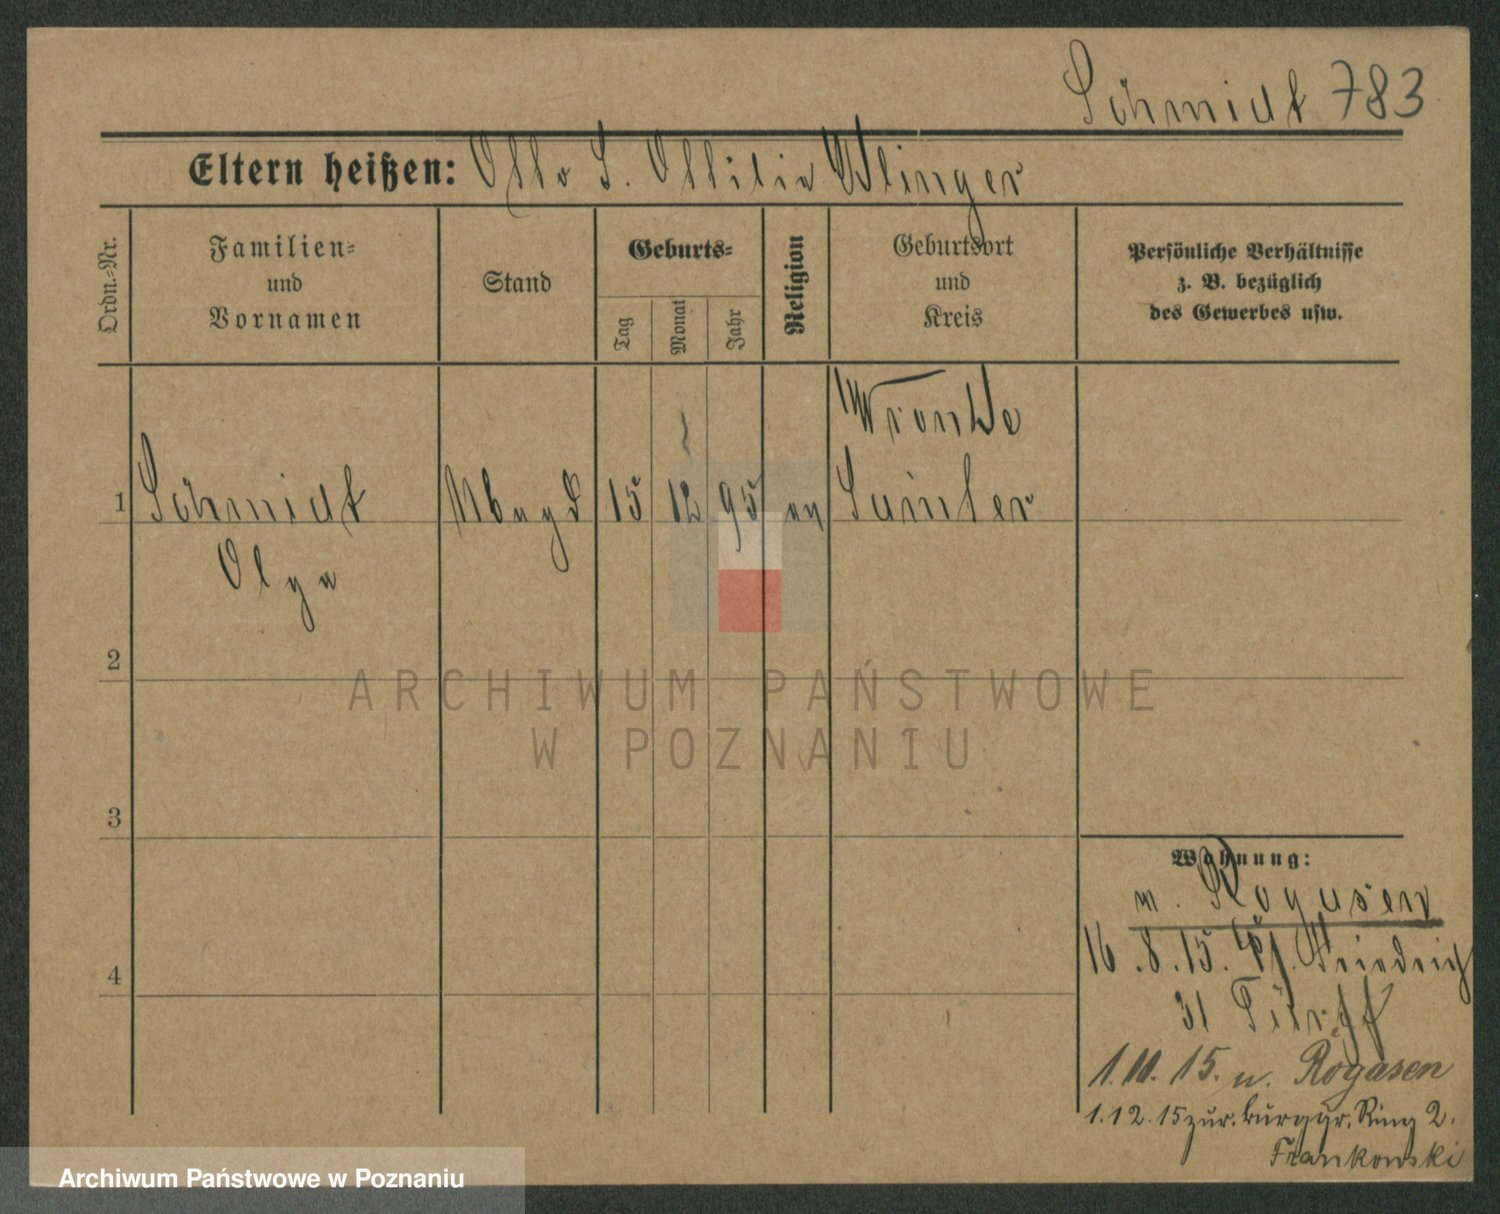 Schmidt 783
Eltern heißen: Otto S. Ottilie Klinger
Ordn.-Nr.
Familien-
und
Vornamen
Stand
Geburts-
Tag
Monat
Jahr
Religion
Geburtsort
und
Kreis
Persönliche Verhältnisse
z. B. bezüglich
des Gewerbes usw.
Wronke
1 Schmidt 15 12 95 ev Samter
Olga
2
3
4
Wohnung:
n. Rogasen
16.8.15. Friedrich
31
1.10.15. n. Rogasen
1.12.15 zur. burggr. Ring 2.
Frankowski
ARCHIWUM PAŃSTWOWE
W POZNANIU
Archiwum Państwowe w Poznaniu